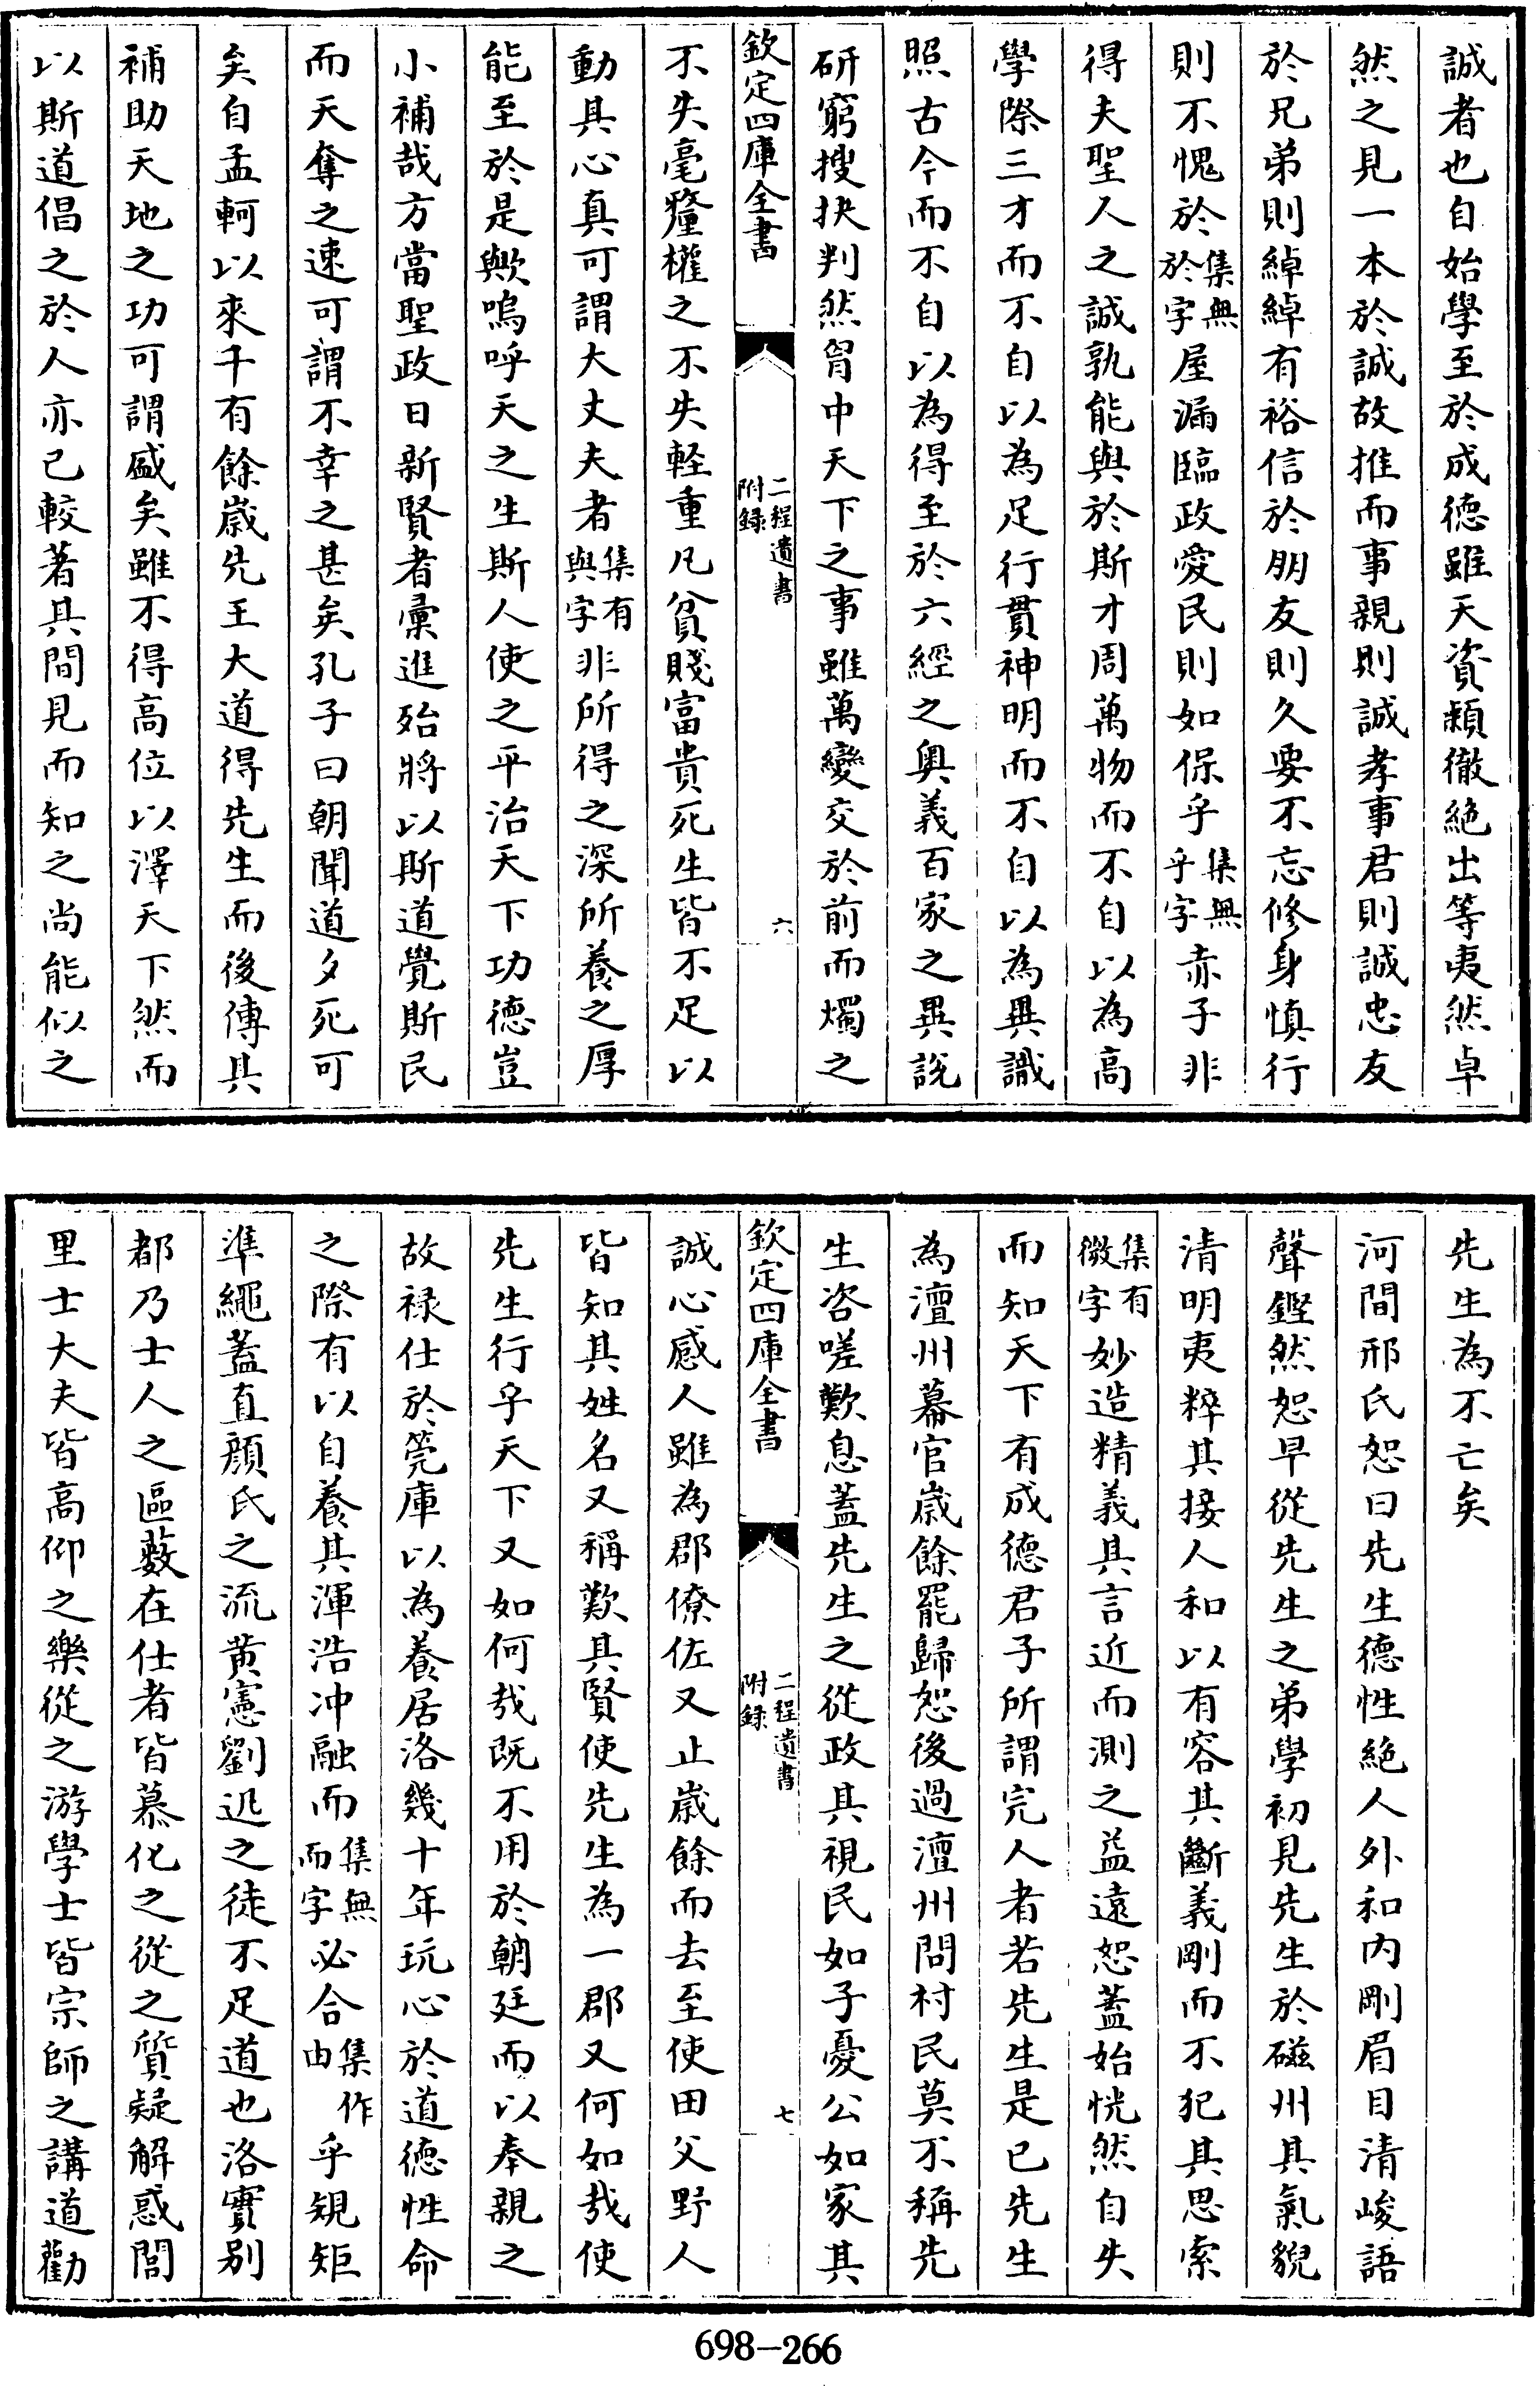 誠者也自始學至於成德雖天資頴徹絶出等夷然卓
然之見一本於誠故推而事親則誠孝事君則誠忠友
於兄弟則綽綽有裕信於朋友則久要不忘修身慎行
則不愧於集無於字屋漏臨政愛民則如保乎集無乎字赤子非
得夫聖人之誠孰能與於斯才周萬物而不自以為高
學際三才而不自以為足行貫神明而不自以為異識
照古今而不自以為得至於六經之奥義百家之異說
研窮搜抉判然胷中天下之事雖萬變交於前而燭之
欽定四庫全書 二程遺書附錄 六
不失毫釐權之不失軽重凡貧賤富貴死生皆不足以
動其心真可謂大丈夫者集有與字非所得之深所養之厚
能至於是歟嗚呼天之生斯人使之平治天下功德豈
小補哉方當聖政日新賢者彙進殆將以斯道覺斯民
而天奪之速可謂不幸之甚矣孔子曰朝聞道夕死可
矣自孟軻以來千有餘嵗先王大道得先生而後傳其
補助天地之功可謂盛矣雖不得高位以澤天下然而
以斯道倡之於人亦已較著其間見而知之尚能似之
先生為不亡矣
河間邢氏恕曰先生德性絶人外和内剛眉目清峻語
聲鏗然恕早從先生之弟學初見先生於磁州其氣貌
清明夷粹其接人和以有容其斷義剛而不犯其思索
集有微字妙造精義其言近而測之益遠恕蓋始恍然自失
而知天下有成德君子所謂完人者若先生是已先生
為澶州幕官嵗餘罷歸恕後過澶州問村民莫不稱先
生咨嗟歎息蓋先生之從政其視民如子憂公如家其
欽定四庫全書 二程遺書附錄 七
誠心感人雖為郡僚佐又止嵗餘而去至使田父野人
皆知其姓名又稱歎其賢使先生為一郡又何如哉使
先生行乎天下又如何哉既不用於朝廷而以奉親之
故禄仕於筦庫以為養居洛幾十年玩心於道德性命
之際有以自養其渾浩冲融而集無而字必合集作由乎規矩
準繩蓋直顔氏之流黄憲劉迅之徒不足道也洛實别
都乃士人之區藪在仕者皆慕化之從之質疑解惑閭
里士大夫皆高仰之樂從之游學士皆宗師之講道勸
698-266